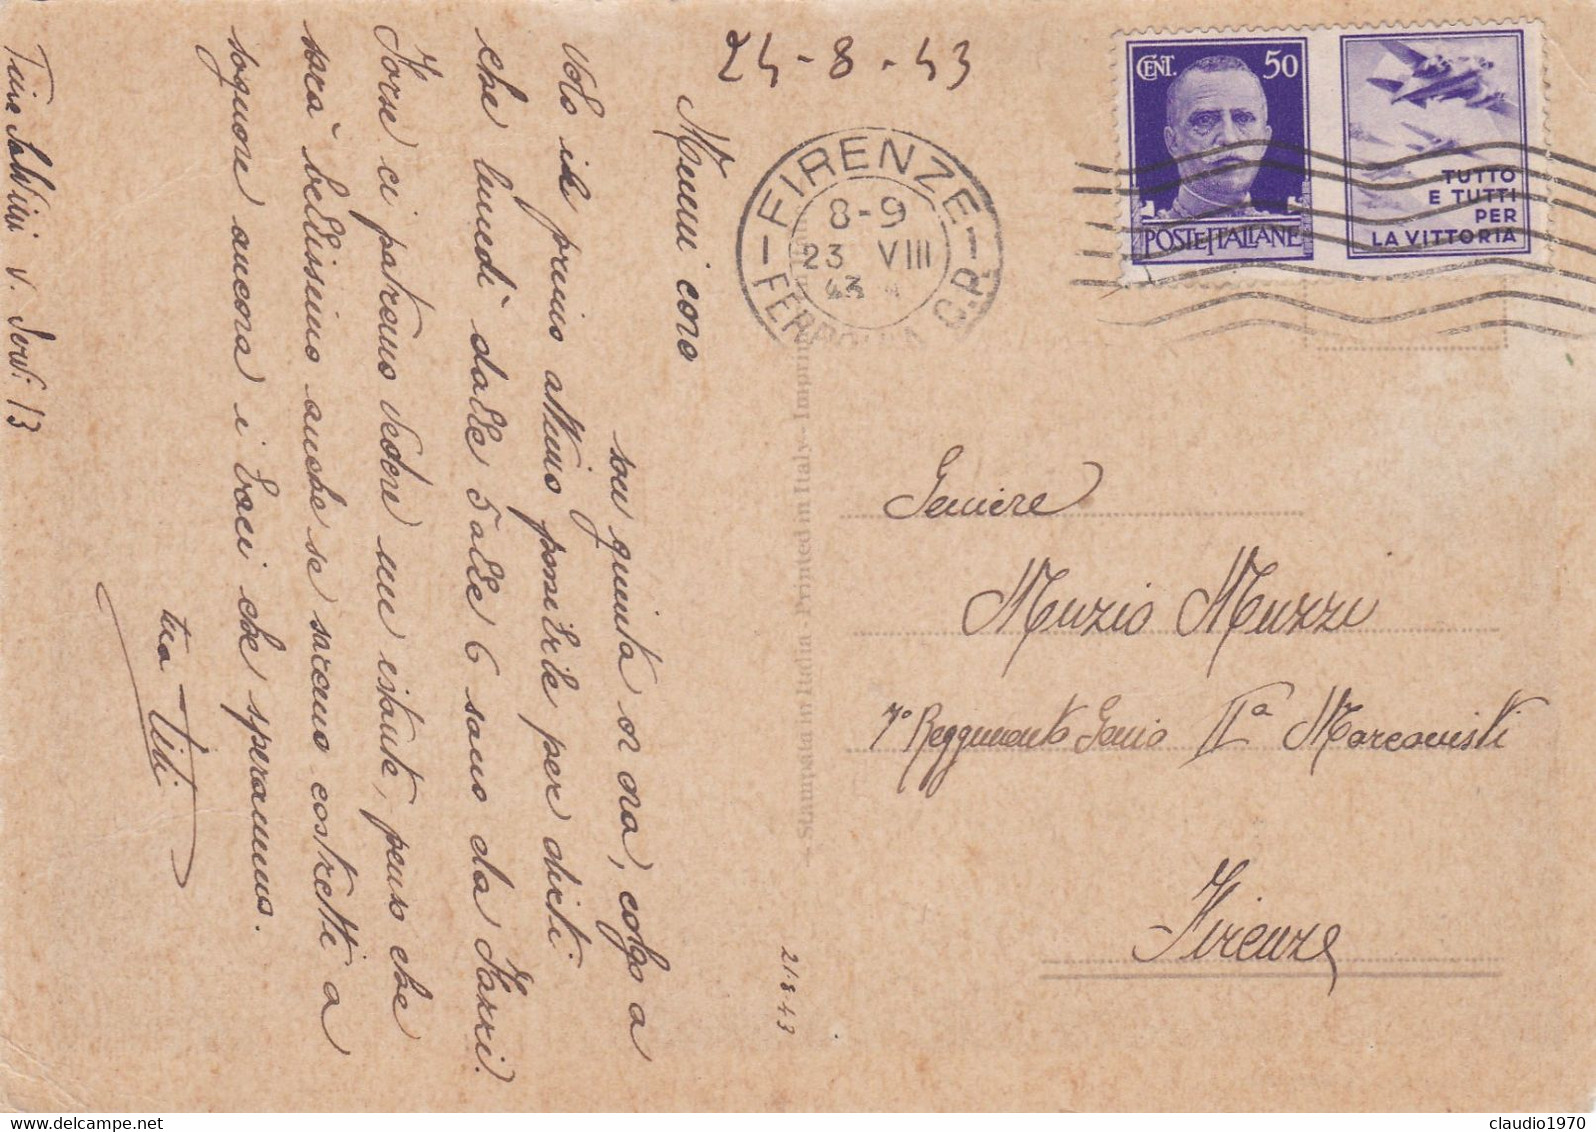 24-8-43
Mumi caro
son giunta or ora, colgo a
volo il primo attimo possibile per dirti
che lunedì dalle 5 alle 6 sono da Sarri.
Forse ci potremo vedere un istante, penso che
sarà bellissimo anche se saremo costretti a
sognare ancora i baci che speriamo.
tua Titti
v. Sordi 13
21·8·43
FIRENZE
8-9
23 VIII
43
FERROVIA C.P.
CENT. 50
POSTE ITALIANE
TUTTO
E TUTTI
PER
LA VITTORIA
Stampata in Italia - Printed in Italy - Imprimé en Italie
Geniere
Muzio Muzzi
7° Reggimento Genio IIª Marconisti
Firenze
claudio1970